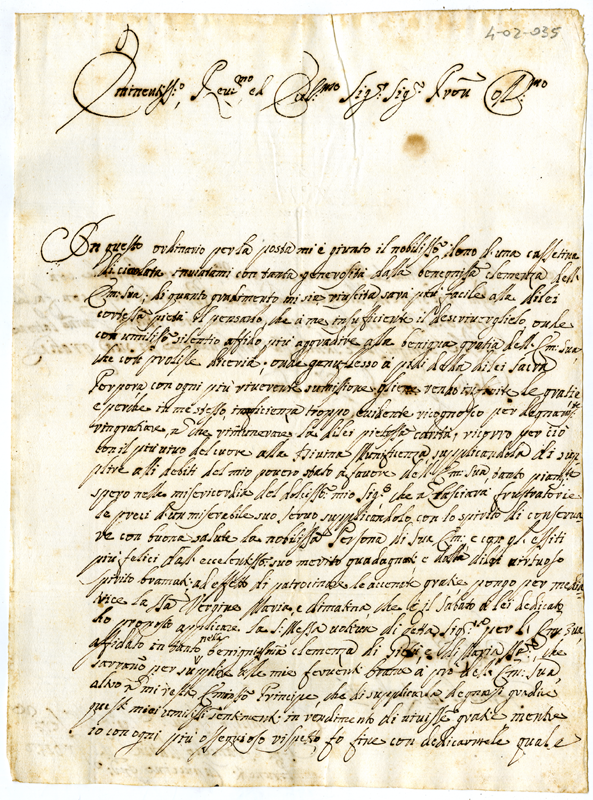 4-02-035
Eminentiss:º, Reu:mo et Sig:r Sig:r Pron Coll:mo
In questo ordinario per la posta mi è giunto il nobiliss:º dono d'una cassettina
di ciocolata inuiatami con tanta generosità dalla benigniss:ª clemenza dell'
Em: Sua; di quanto gradimento mi sia riuscita sarà più facile alla di lei
pietà il pensarlo, che à me insufficiente il descriverglielo, onde
con umiliss:º silentio affido più aggradire alla benigna gratia dell' Em: Sua,
che con prolisse diceria; onde genuflesso a piedi della di lei sacra
Porpora con ogni più riverente sumissione gliene rendo infinite le gratie
e perche in me stesso troppo euidente ricognosco per degnam:te
ringratiare, e rimunerare la di lei pietosa carità, ricorro per ciò
con il più uiuo del cuore alla Diuina Munificenza supplicandola di sup-
plire alli debiti del mio pouero stato à fauore dell' Em: Sua, tanto
spero nelle misericordie del dolciss:º mio Sig:re che n lasciarà frustratorie
le preci d'un miserabile suo seruo supplicandolo con lo spirito di conserua-
re con buona salute la nobiliss:ª Persona di Sua Em: e con gl' essiti
più felici dal eccelentiss:º suo merito guadagnati e dallo di lei uirtuoso
spirito bramati; al effetto di patrocinare le accennate gratie pongo per media-
trice la SS:ma Vergine Maria, e dimatina che è il Sabato a lei dedicato
hò proposto applicare la S: Messa uotiua di detta Sig:ra per l' Em: Sua,
affidato in tanto nella benigniss:ª clemenza di Giesù, e di Maria, che
sarrano per supplire alle mie feruenti brame à prò dell' Em: Sua,
altro n mi resta Eminentiss:º Principe, che di supplicarla degnarsi gradire
questi miei umiliss:i sentimenti in rendimento di uiuiss:e gratie mentre
io con ogni più ossequioso rispetto, fò fine con dedicarmele quale